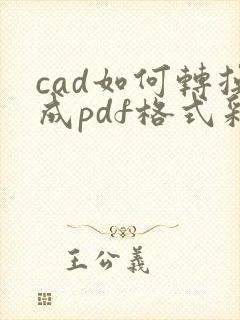 cad如何轉換
成pdf格式彩
王公義